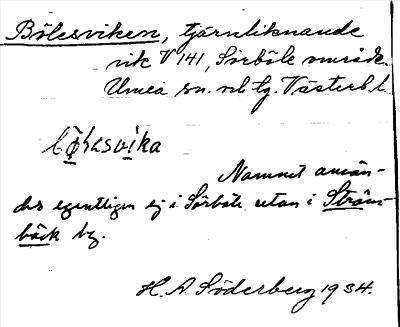 Bölesviken, tjärnliknande
vik V 141, Sörböle område.
Umeå sn. och tg. Västerb l.
Namnet använ-
des egentligen ej i Sörböle utan i Ström-
bäck by.
H. A. Söderberg 1934.